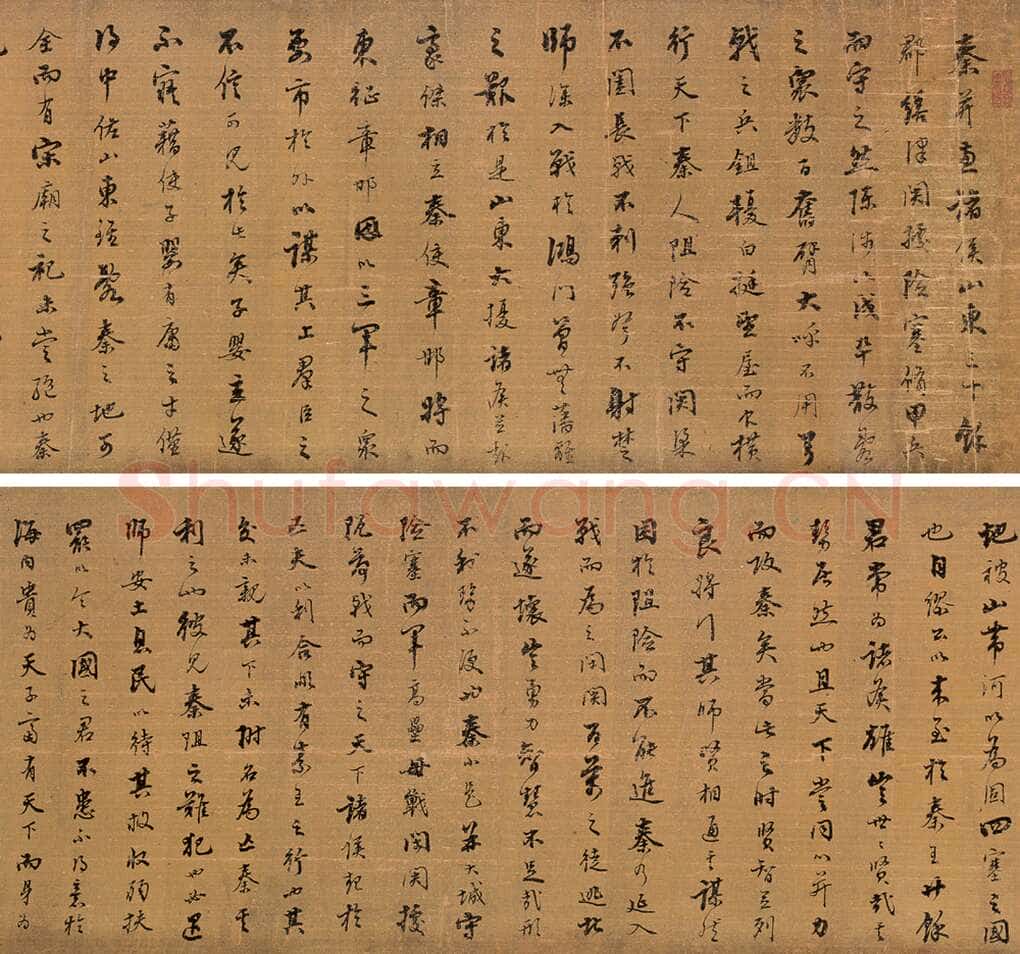 秦并兼諸侯山東三十餘
郡繕津関據險塞脩甲兵
而守之然陳涉以戍卒散亂
之眾數百奮臂大呼不用弓
戟之兵鉏耰白梃望屋而食橫
行天下秦人阻險不守関梁
不闔長戟不刺強弩不射楚
師深入戰於鴻門曾無藩籬
之艱於是山東大擾諸侯並起
豪傑相立秦使章邯將而
東征章邯因以三軍之眾
要市於外以謀其上群臣之
不信可見於此矣子嬰立遂
不寤藉使子嬰有庸主才僅
得中佐山東雖亂秦之地可
全而有宗廟之祀未當絕也秦
地被山帶河以為固四塞之國
也自繆公以來至於秦王廿餘
君常為諸侯雄豈世〻賢哉其
勢居然也且天下嘗同心并力
而攻秦矣當此之時賢智並列
良將行其師賢相通其謀然
困於阻險而不能進秦乃延入
戰而為之開関百萬之徒逃北
而遂壞豈勇力智慧不足哉形
不利勢不便也秦小邑并大城守
險塞而軍高壘毋戰閉関據
阨荷戟而守之天下諸侯起於
匹夫以利合非有素王之行也其
交未親其下未附名為亡秦其
利之也彼見秦阻之難犯也必退
師安土息民以待其敝收弱扶
罷以令大國之君不患不得意於
海內貴為天子富有天下而身為
Shufawang.CN